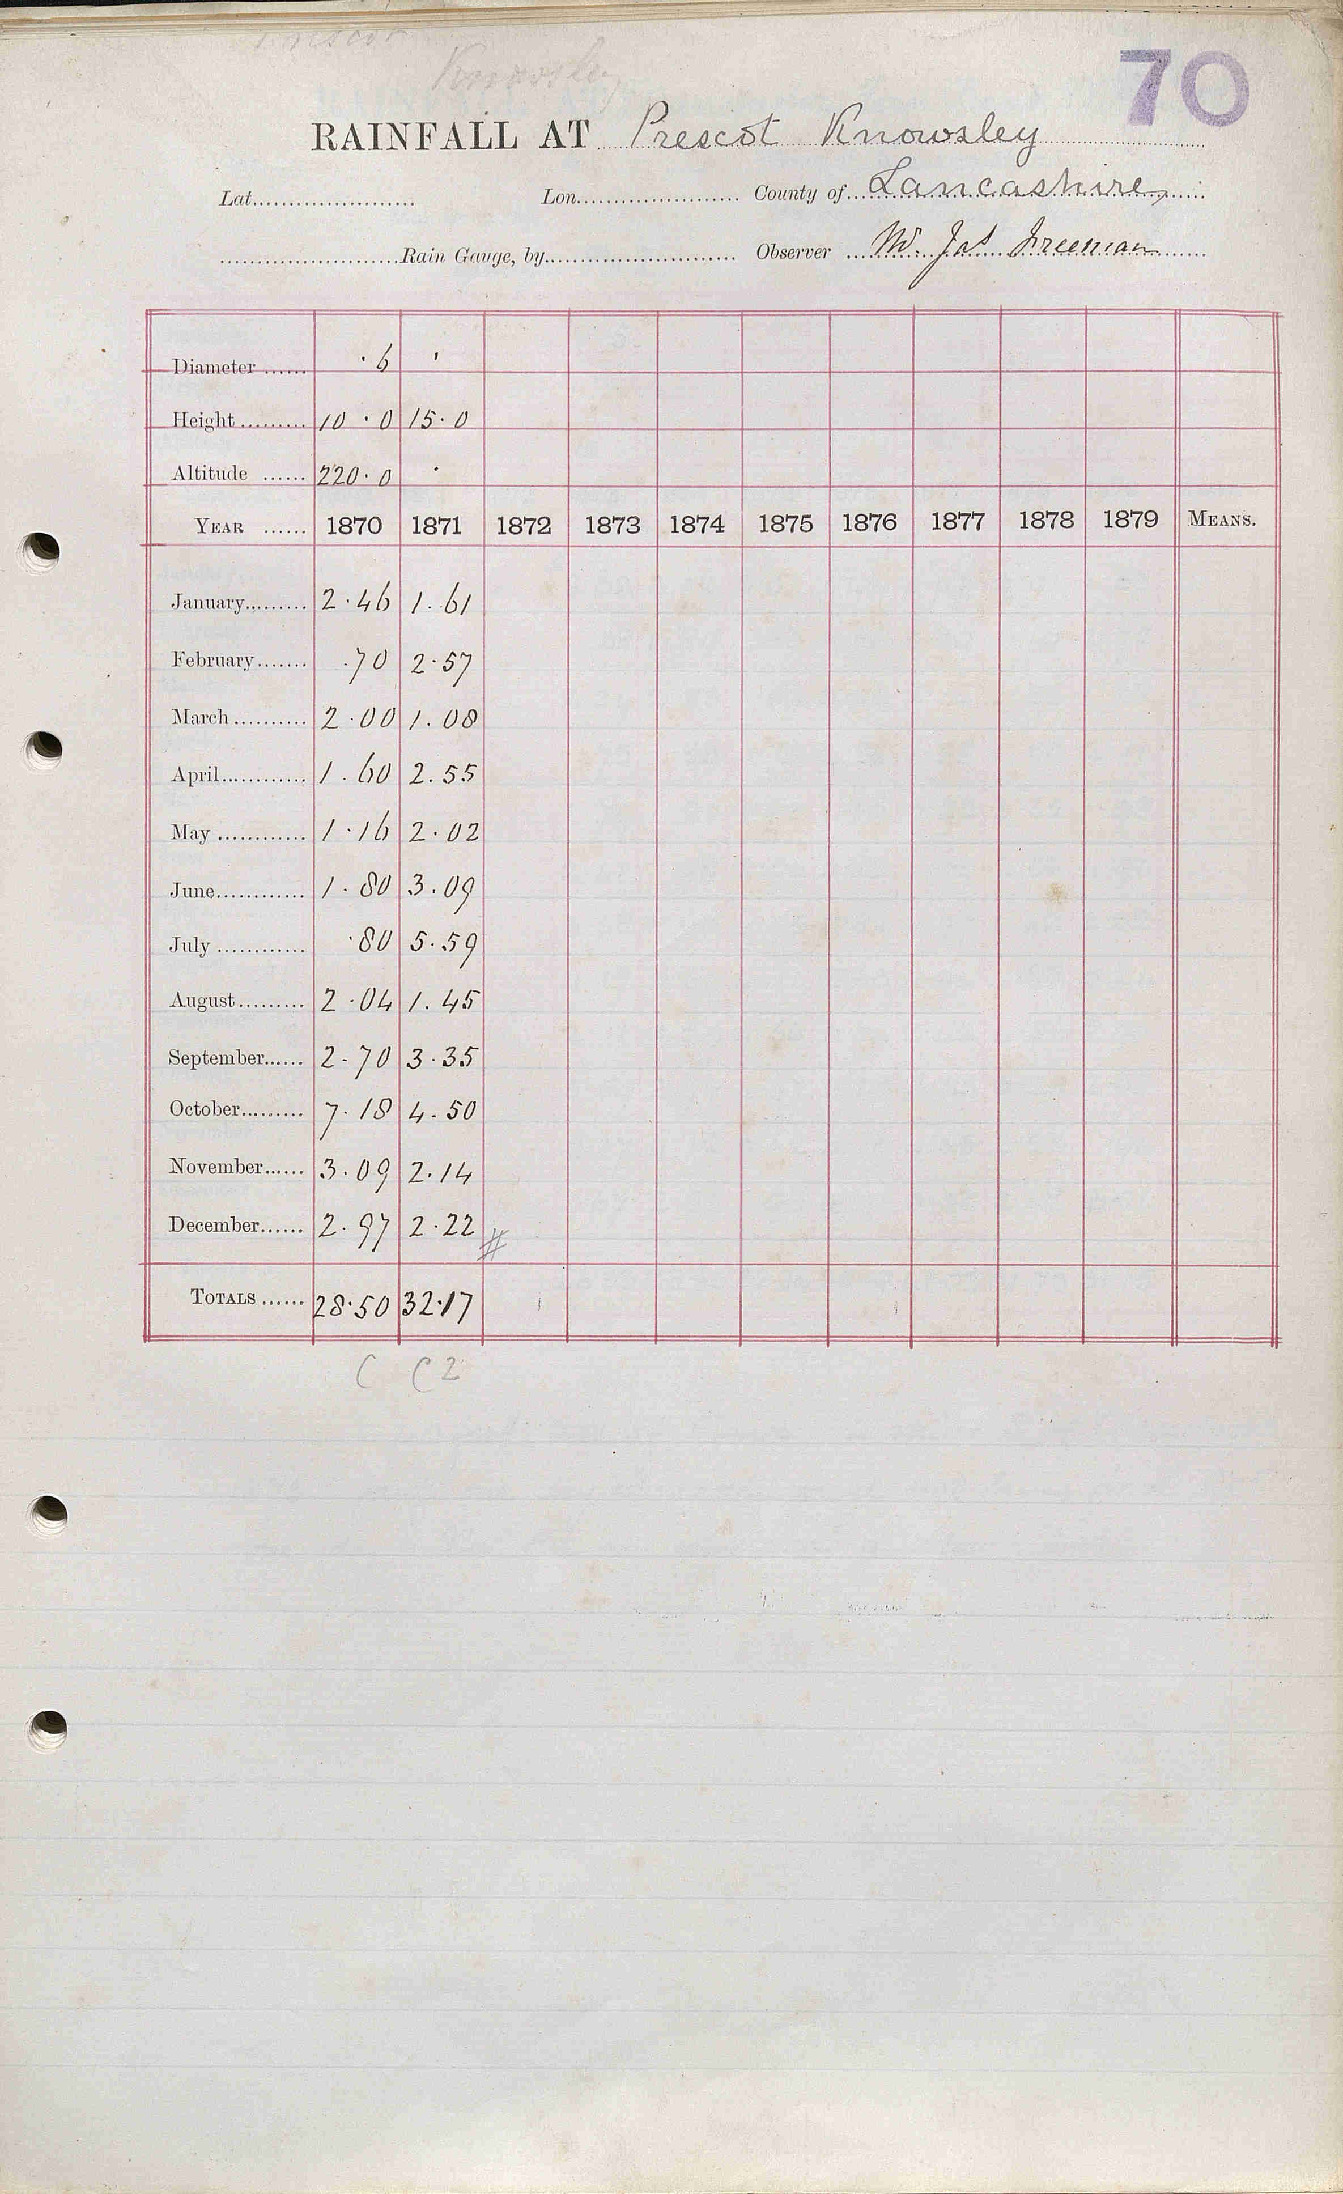 Knowsley
70
RAINFALL AT Prescot Knowsley
Lat. Lon. County of Lancashire,
Rain Gauge, by Observer Mr. Jas Freeman
Diameter ...... ·6 '
Height ......... 10·0 15·0
Altitude ...... 220·0 ·
YEAR ...... 1870 1871 1872 1873 1874 1875 1876 1877 1878 1879 MEANS.
January ......... 2·46 1.61
February ....... .70 2·57
March .......... 2·00 1.08
April ............ 1.60 2.55
May ............ 1·16 2·02
June ............ 1·80 3.09
July ............ ·80 5·59
August ......... 2·04 1.45
September ...... 2·70 3·35
October ......... 7·18 4·50
November ...... 3·09 2·14
December ...... 2·97 2·22 #
TOTALS ...... 28·50 32·17
C C2